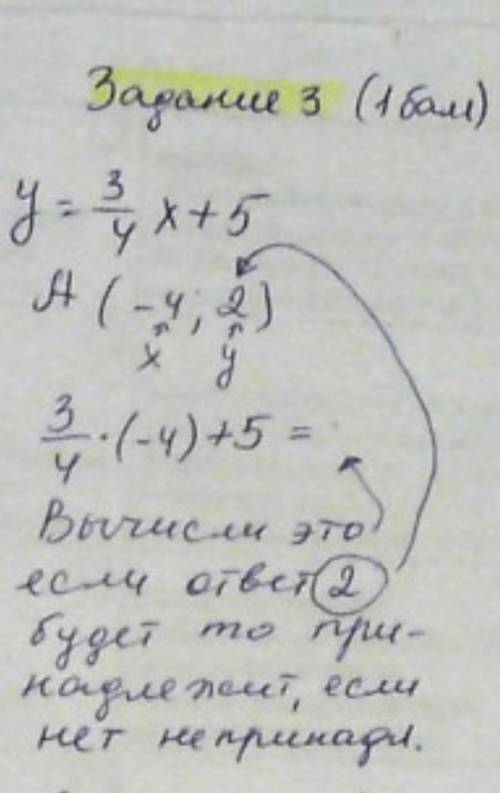 Задание 3 (1 бал)
y = 3/4 x + 5
A (-4; 2)
x y
3/4 · (-4) + 5 =
Вычисли это
если ответ 2
будет то при-
надлежит, если
нет непринадл.